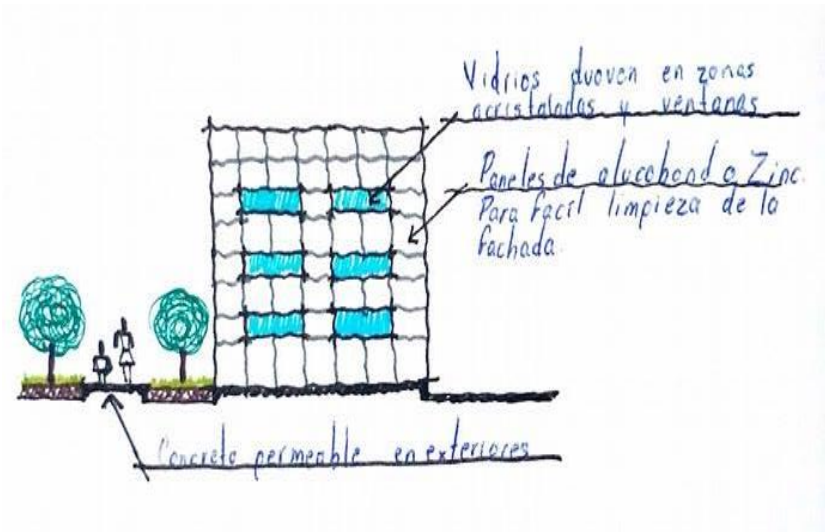 Vidrios duoven en zonas
acristaladas y ventanas
Paneles de alucobond o Zinc.
Para facil limpieza de la
fachada.
Concreto permeable en exteriores